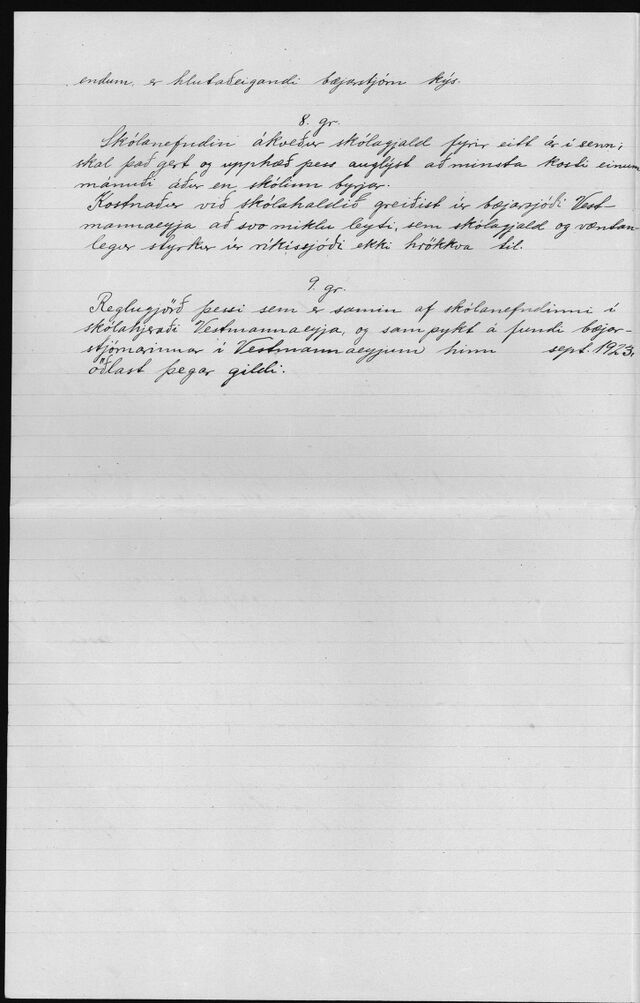 endum, er hlutaðeigandi bæjarstjórn kýs.
8. gr.
Skólanefndin ákveður skólagjald fyrir eitt ár í senn;
skal það gert og upphæð þess auglýst að minsta kosti einum
mánuði áður en skólinn byrjar.
Kostnaður við skólahaldið greiðist úr bæjarsjóði Vest-
mannaeyja að svo miklu leyti, sem skólagjald og væntan
legur styrkur úr ríkissjóði ekki hrökkva til.
9. gr.
Reglugjörð þessi sem er samin af skólanefndinni í
skólahjeraði Vestmannaeyja, og samþykt á fundi bæjar-
stjórnarinnar í Vestmannaeyjum hinn sept. 1923,
öðlast þegar gildi.